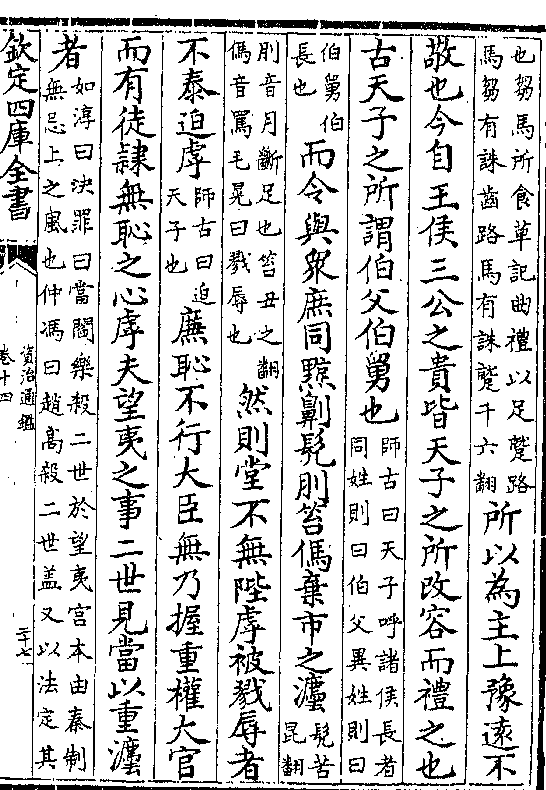 也芻馬所食草記曲禮以足蹙路
馬芻有誅齒路馬有誅蹵千六翻
所以為主上豫遠不
敬也今自王侯三公之貴皆天子之所改容而禮之也
古天子之所謂伯父伯舅也
師古曰天子呼諸侯長者
同姓則曰伯父異姓則曰
伯舅伯
長也
而令與衆庶同黥劓髠刖笞傌棄市之灋
髠苦
昆翻
刖音月斷足也笞丑之翻
傌音罵毛晃曰戮辱也
然則堂不無陛虖被戮辱者
不泰迫虖
師古曰迫
天子也
廉恥不行大臣無乃握重權大官
而有徒隷無恥之心虖夫望夷之事二世見當以重灋
者
如淳曰決罪曰當閻樂殺二世於望夷宫本由秦制
無忌上之風也仲馮曰趙高殺二世盖又以法定其
欽定四庫全書
資治通鑑
卷十四
二十七